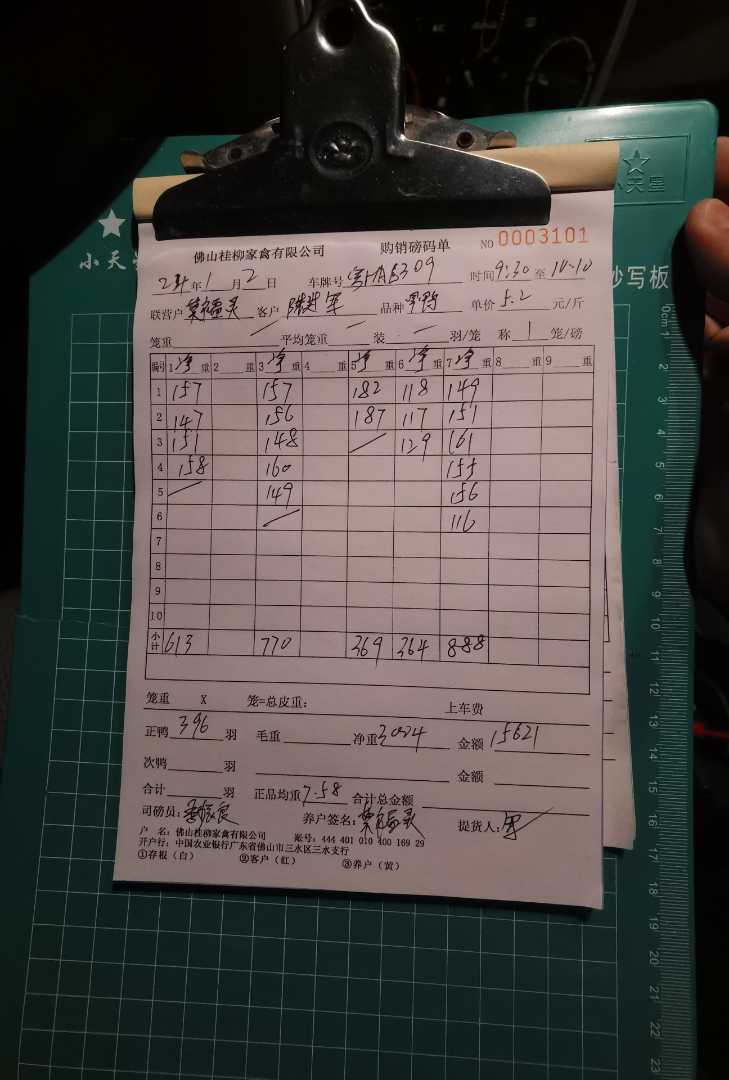 小天星
小天
抄写板
佛山桂柳家禽有限公司 购销磅码单 NO 0003101
24年1月2日 车牌号 粤HAB309 时间9:30至10:10
联营户 客户 品种 单价5.2元/斤
笼重 平均笼重 装 羽/笼 称1笼/磅
编号 1净重 2 重 3净重 4 重 5净重 6净重 7净重 8 重 9 重
1 157 157 182 118 149
2 147 156 187 117 151
3 151 148 129 161
4 158 160 155
5 149 156
6 116
7
8
9
10
小计 613 770 369 364 888
笼重 X 笼=总皮重: 上车费
正鸭396羽 毛重 净重3004 金额15621
次鸭 羽 金额
合计 羽 正品均重7.58 合计总金额
司磅员: 养户签名: 提货人:
户 名:佛山桂柳家禽有限公司 账号:444 401 010 400 169 29
开户行:中国农业银行广东省佛山市三水区三水支行
①存根(白) ②客户(红) ③养户(黄)
0cm 1
2
3
4
5
6
7
8
9
10
11
12
13
14
15
16
17
18
19
20
21
22
23